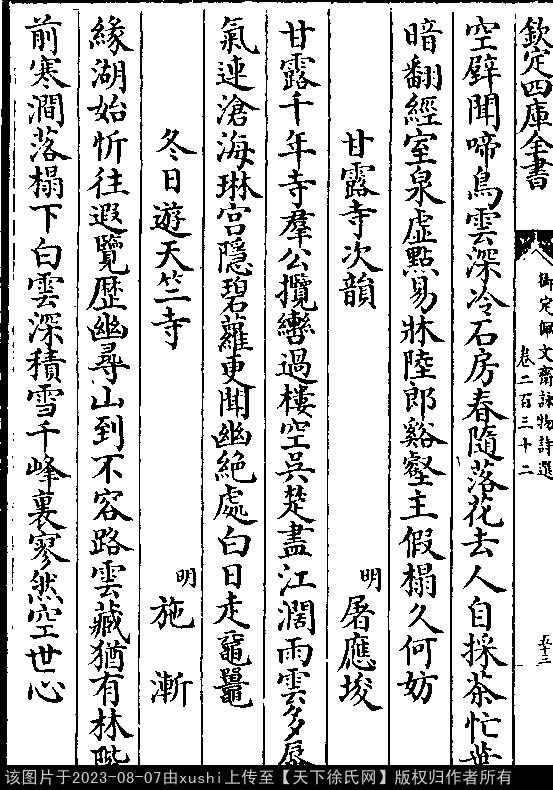 欽定四庫全書
御定佩文齋詠物詩選
卷二百三十二
五十三
空壁聞啼鳥雲深冷石房春隨落花去人自採茶忙葉
暗翻經室泉虛點易牀陸郎谿壑主假榻久何妨
甘露寺次韻
明 屠應埈
甘露千年寺羣公攬轡過樓空吳楚盡江濶雨雲多蜃
氣連滄海琳宮隱碧蘿更聞幽絕處白日走黿鼉
冬日遊天竺寺
明 施漸
緣湖始忻往遐覽歷幽尋山到不容路雲藏猶有林階
前寒澗落榻下白雲深積雪千峰裏寥然空世心
该图片于2023-08-07由xushi上传至【天下徐氏网】版权归作者所有